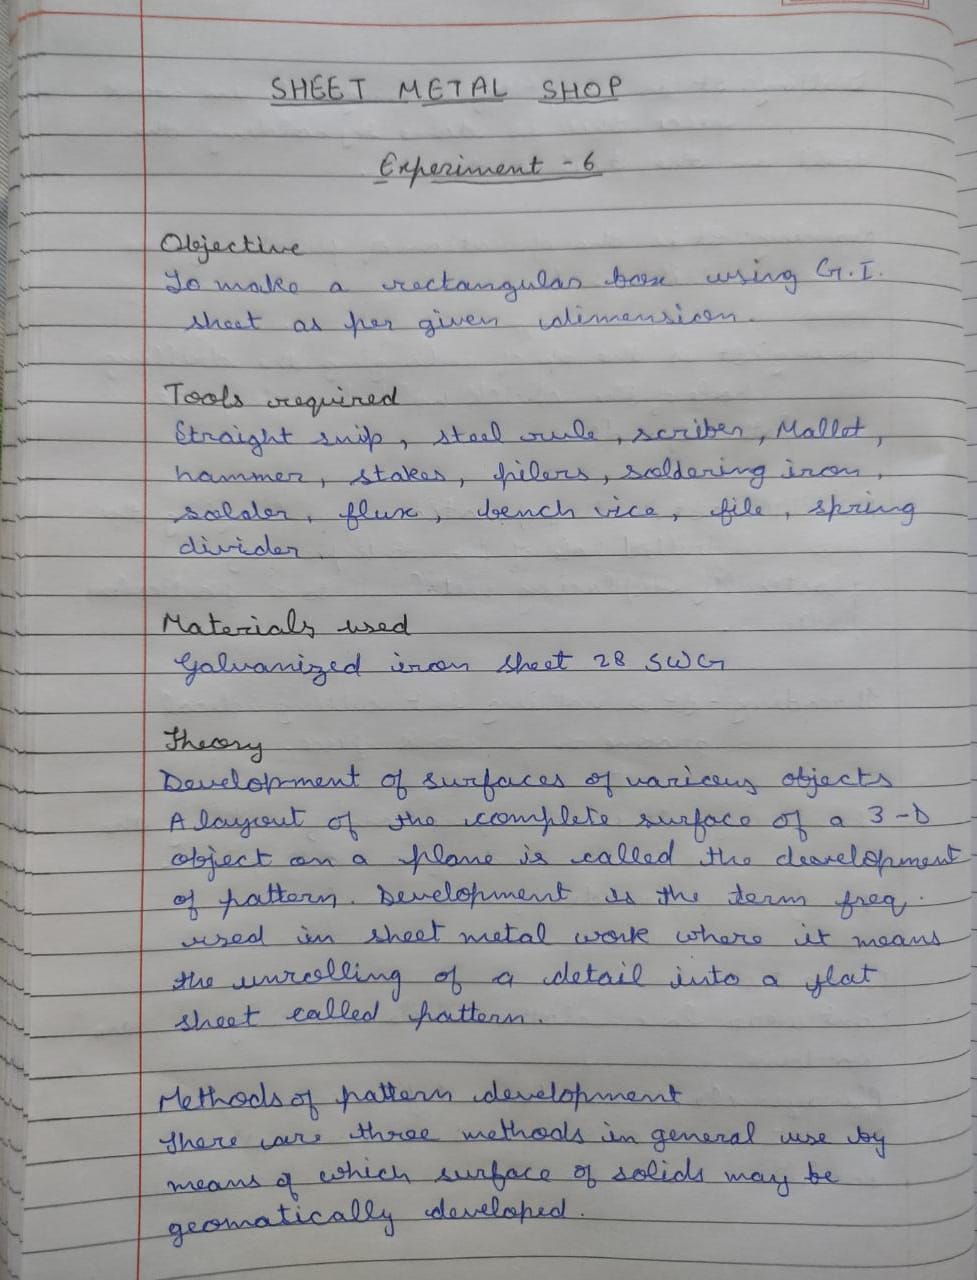 SHEET METAL SHOP
Experiment - 6
Objective
To make a rectangular box using G.I.
sheet as per given dimension.
Tools required
Straight snip, steel rule, scriber, Mallet,
hammer, stakes, pilers, soldering iron,
solder, flux, bench vice, file, spring
divider.
Materials used
Galvanized iron sheet 28 SWG
Theory
Development of surfaces of various objects
A layout of the complete surface of a 3-D
object on a plane is called the development
of pattern. Development is the term freq.
used in sheet metal work where it means
the unrolling of a detail into a flat
sheet called pattern.
Methods of pattern development
There are three methods in general use by
means of which surface of solids may be
geomatically developed.